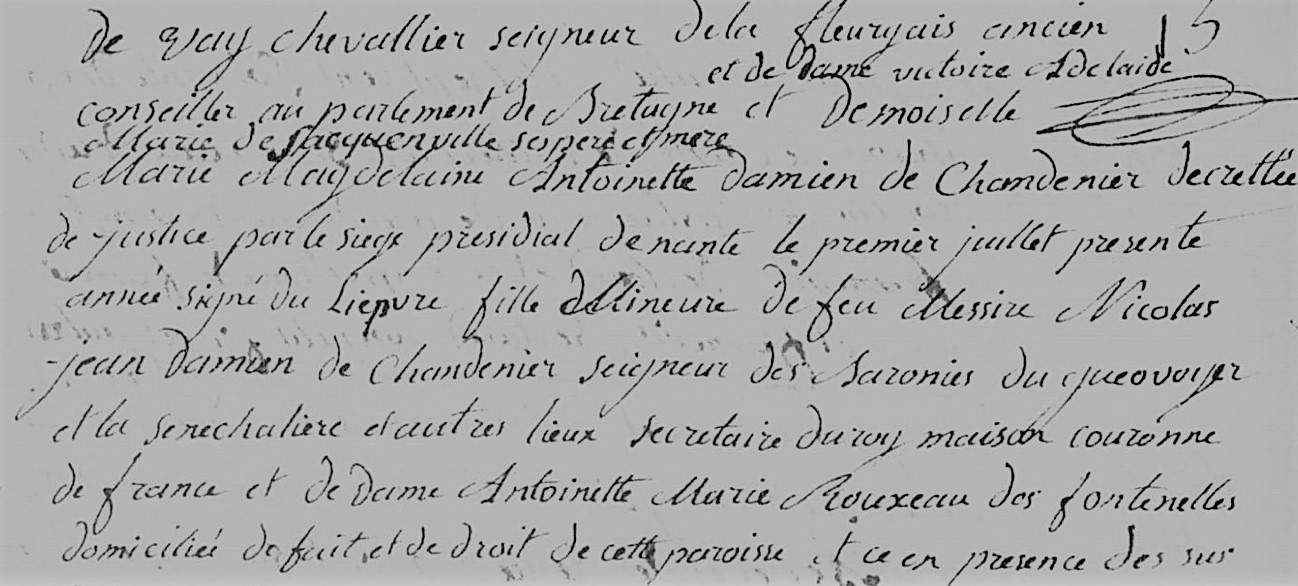 de Vay chevallier seigneur dela fleuryais ancien 15
et de dame victoire Adelaide
conseiller au parlement de Bretagne et Demoiselle
Marie de Jacquenville ses pere et mere
Marie Magdelaine Antoinette damien de Chandenier decrettée
de justice par le siege presidial de nante le premier juillet presente
année signé du Liepvre fille Mineure de feu Messire Nicolas
jean damien de Chandenier seigneur des Baronies du gueovoyer
et la senechaliere et autres lieux secretaire du roy maison couronne
de france et de Dame Antoinette Marie Rouxeau des fontenelles
domiciliée de fait et de droit de cette paroisse et ce en presence des sus